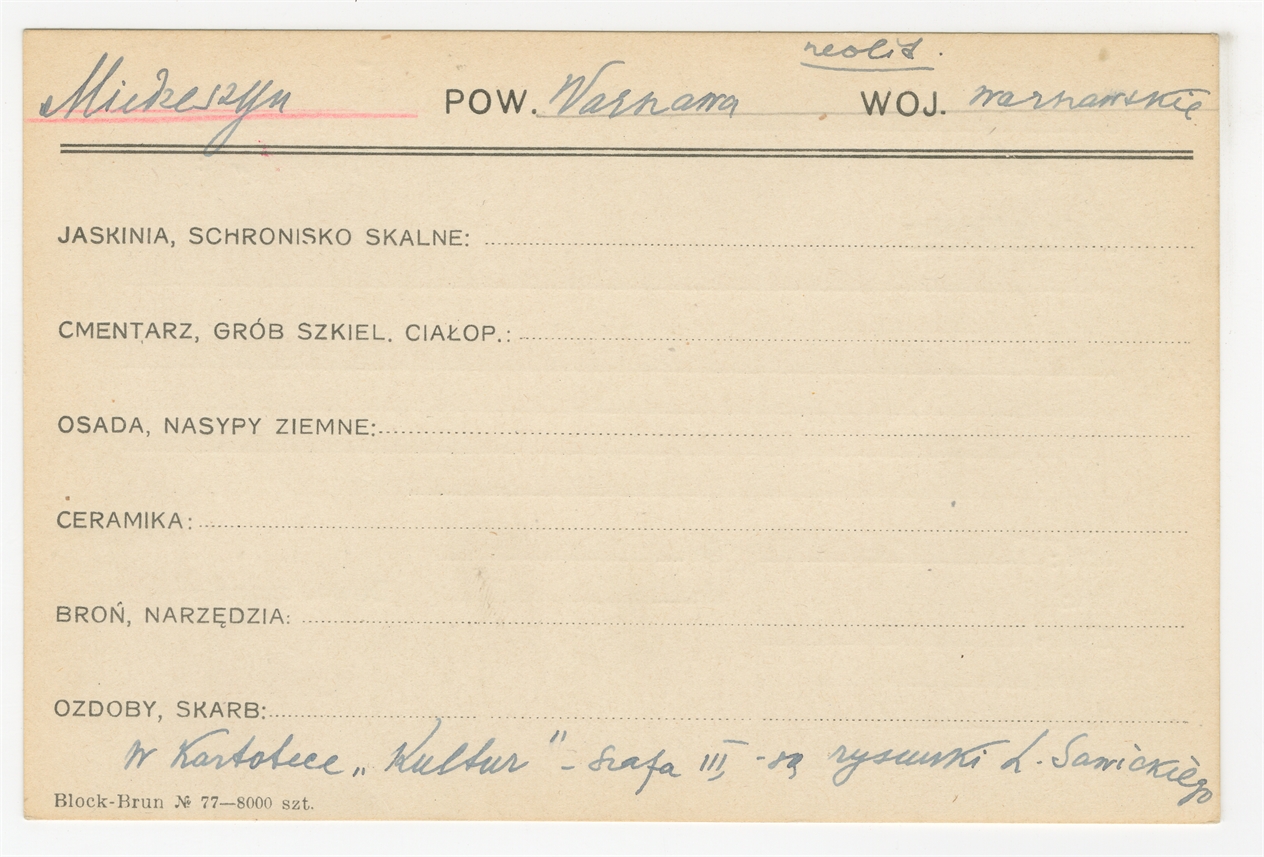 neolit.
Miedzeszyn POW. Warszawa WOJ. warszawskie
JASKINIA, SCHRONISKO SKALNE:
CMENTARZ, GRÓB SZKIEL. CIAŁOP.:
OSADA, NASYPY ZIEMNE:
CERAMIKA:
BROŃ, NARZĘDZIA:
OZDOBY, SKARB:
w Kartotece „Kultur" - szafa III, - są rysunki L. Sawickiego
Block-Brun № 77—8000 szt.